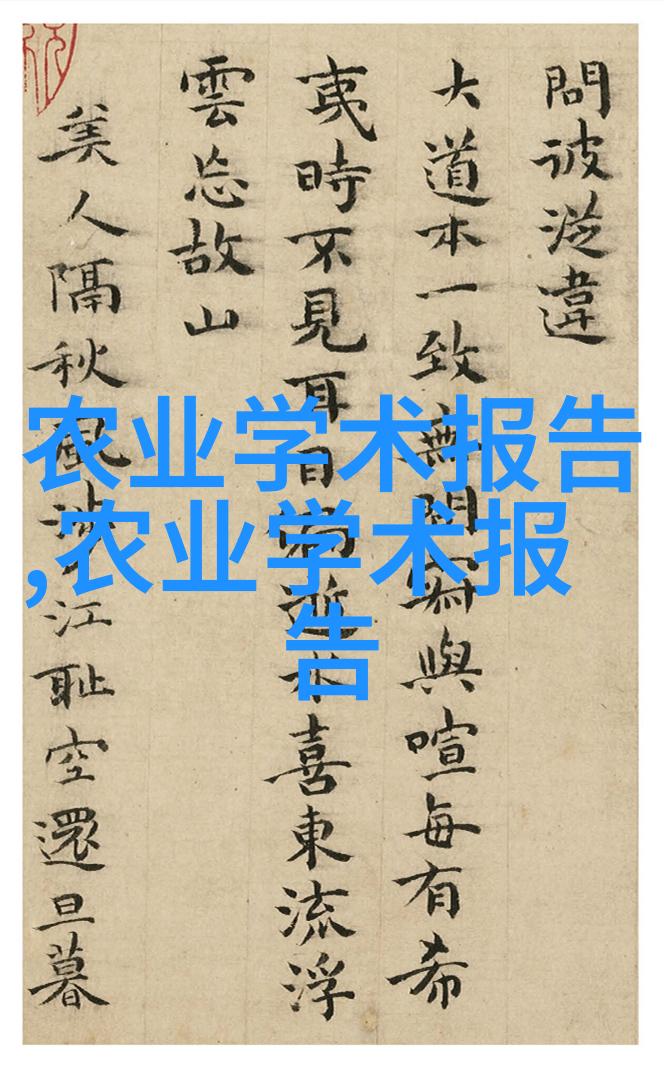 問彼違
大道本一致無問寂與喧每有希
夷時不見耳目水喜東流浮
雲忘故山
美人隔秋風涉江耻空還旦暮
农业学术报告
,农业学术报
告